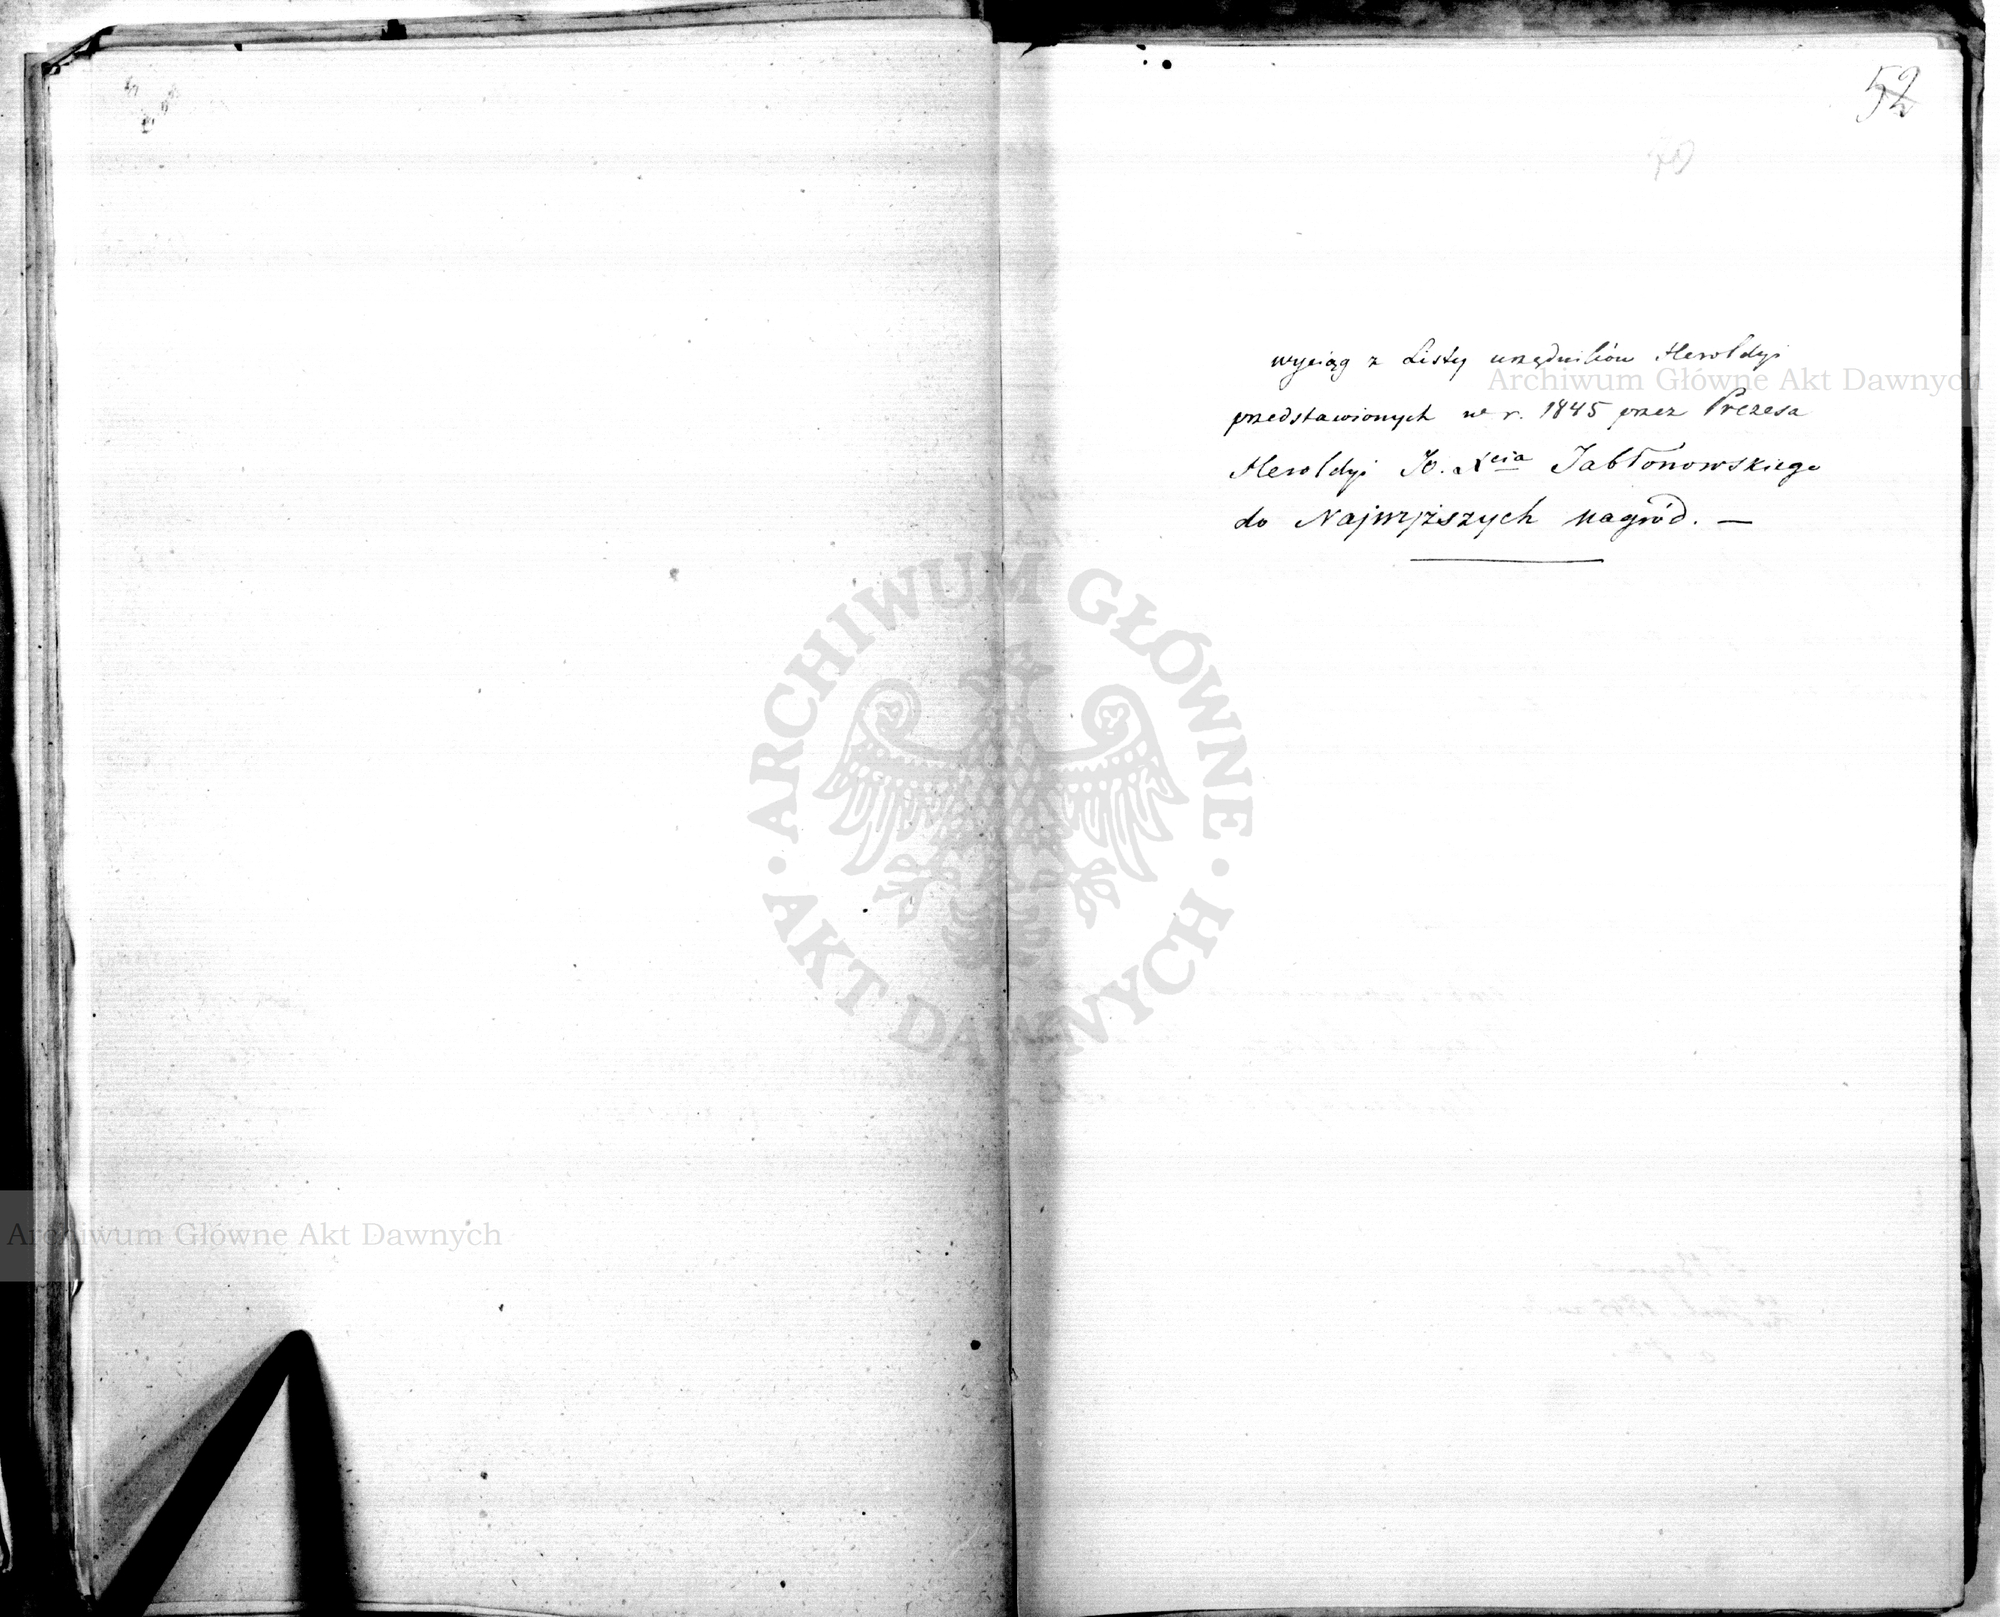 52
wyciąg z Listy urzędników Heroldyi
przedstawionych w r. 1845 przez Prezesa
Heroldyi JO. Xcia Jabłonowskiego
do Najwyższych nagród. —
Archiwum Główne Akt Dawnych
ARCHIWUM GŁÓWNE · AKT DAWNYCH ·
Archiwum Główne Akt Dawnych